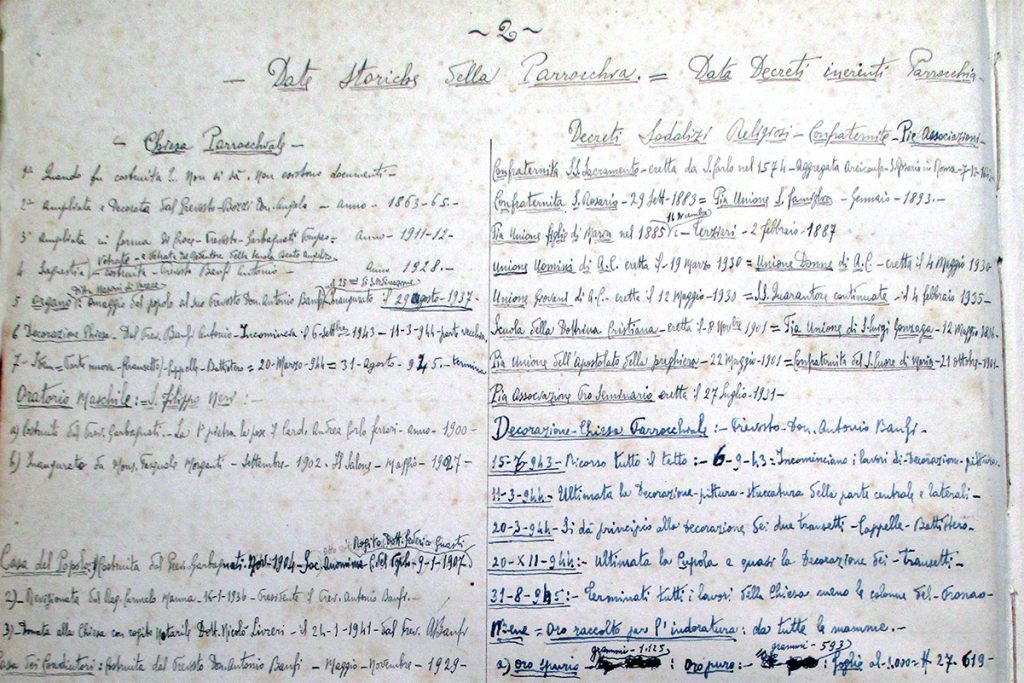 ~ 2 ~
- Date Storiche della Parrocchia. = Data Decreti inerenti Parrocchia -
- Chiesa Parrocchiale -
1ª Quando fu costruita?.. Non si sà. Non esistono documenti -
2ª Ampliata e Decorata dal Prevosto - Bozzi Don. Angelo - anno - 1863-65 -
3ª Ampliata in forma di Croce - Prevosto - Garbagnati Pompeo = Anno - 1911-12 -
Vetrate - e Vetrata del della Beato Angelico
4 Sagrestia - costruita - Prevosto Banfi Antonio - Anno 1928. -
Ditta di
5 Organo: Omaggio del popolo al suo Prevosto Don. Antonio Banfi - Inaugurato il 29 agosto - 1937. -
25º di Ordinazione
6 Decorazione Chiesa - Dal Prev. Banfi Antonio - Incomincia il 6 settbre 1943 - 11-3-944 parte vecchia
7 - Idem - Parte nuova - (transetto) - Cappelle - Battistero = 20 - Marzo - 944 = 31 - Agosto - 945. termina
Oratorio Maschile: = S. Filippo Neri: =
a) Costruito dal Prev. Garbagnati. - La 1ª pietra la pose il Card. Andrea Carlo Ferrari - anno - 1900 -
b) Inaugurato da Mons. Pasquale Morganti - Settembre - 1902. Il Salone - Maggio - 1927 -
Rogito Dott. Federico Guasti
Casa del Popolo) Costruita dal Prev. Garbagnati. 1904 - Soc. Anonima (del 9-1-1907)
2) - dal Rag. Carmelo Manna - 16-1-1936 - Presidente il Prev. Antonio Banfi. -
3) - Donata alla Chiesa con rogito Notarile Dott. Nicolò Livreri - il 24-1-1941 - dal Prev. A. Banfi
Casa dei Coadiutori: Costruita dal Prevosto Don. Antonio Banfi - Maggio - Novembre - 1929 -
Decreti Sodalizi Religiosi - Confraternite - Pie Associazioni -
Confraternita S.S. Sacramento - eretta da S. Carlo nel 1574 - Aggregata Arciconf. in Roma - 7-12-
Confraternita S. Rosario - 29 Sett - 1883 = Pia Unione S. Famiglia - Gennaio - 1893. -
Pia Unione figlie di Maria nel 1885 - Terzieri - 2 febbraio - 1887
Unione Uomini di A.C. eretta il 19 Marzo 1930 = Unione Donne di A.C. - eretta il 4 Maggio 1930
Unione Giovani di A.C. - eretta il - 12 Maggio - 1930 = SS. Quarantore continuate - il 4 febbraio 1935 -
Scuola della Dottrina Cristiana - eretta il - 8 Novbre 1901 = Pia Unione di S. Luigi Gonzaga - 12 Maggio
Pia Unione dell'Apostolato della preghiera - 22 Maggio - 1901 = Confraternita del S. Cuore di Maria - 21 Ottobre -
Pia Associazione Pro Seminario eretta il 27 Luglio - 1931 -
Decorazione - Chiesa Parrocchiale: - Prevosto - Don. Antonio Banfi -
15-7-943 - Ricorso tutto il tetto: - 6-9-43 = Incominciano i lavori di - Decorazione - pittura.
11-3-944 - Ultimata la Decorazione - pittura - stuccatura della parte centrale e laterali -
20-3-944 - Si dà principio alla decorazione dei due transetti - Cappelle - Battistero -
20-XII-944: - Ultimata la Cupola e quasi la Decorazione dei - transetti -
31-8-945: - Terminati tutti i lavori della Chiesa meno le colonne del - Pronao -
N. Bene = Oro raccolto per l'indoratura: da tutte le mamme. -
grammi - 1.125 grammi - 593
a) Oro spurio : Oro puro: - foglie al - 27-619 -